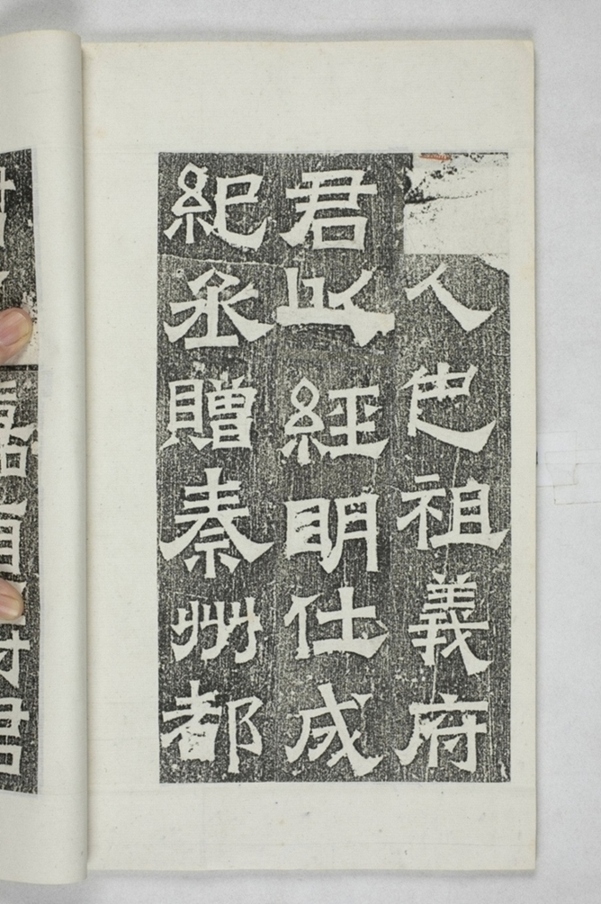 人也祖義府
君以經明仕成
紀丞贈秦州都